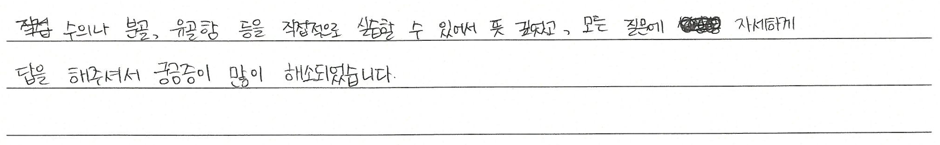 수의나 분골, 유골함 등을 직접적으로 실습할 수 있어서 뜻 깊었고, 모든 질문에 자세하게
답을 해주셔서 궁금증이 많이 해소되었습니다.